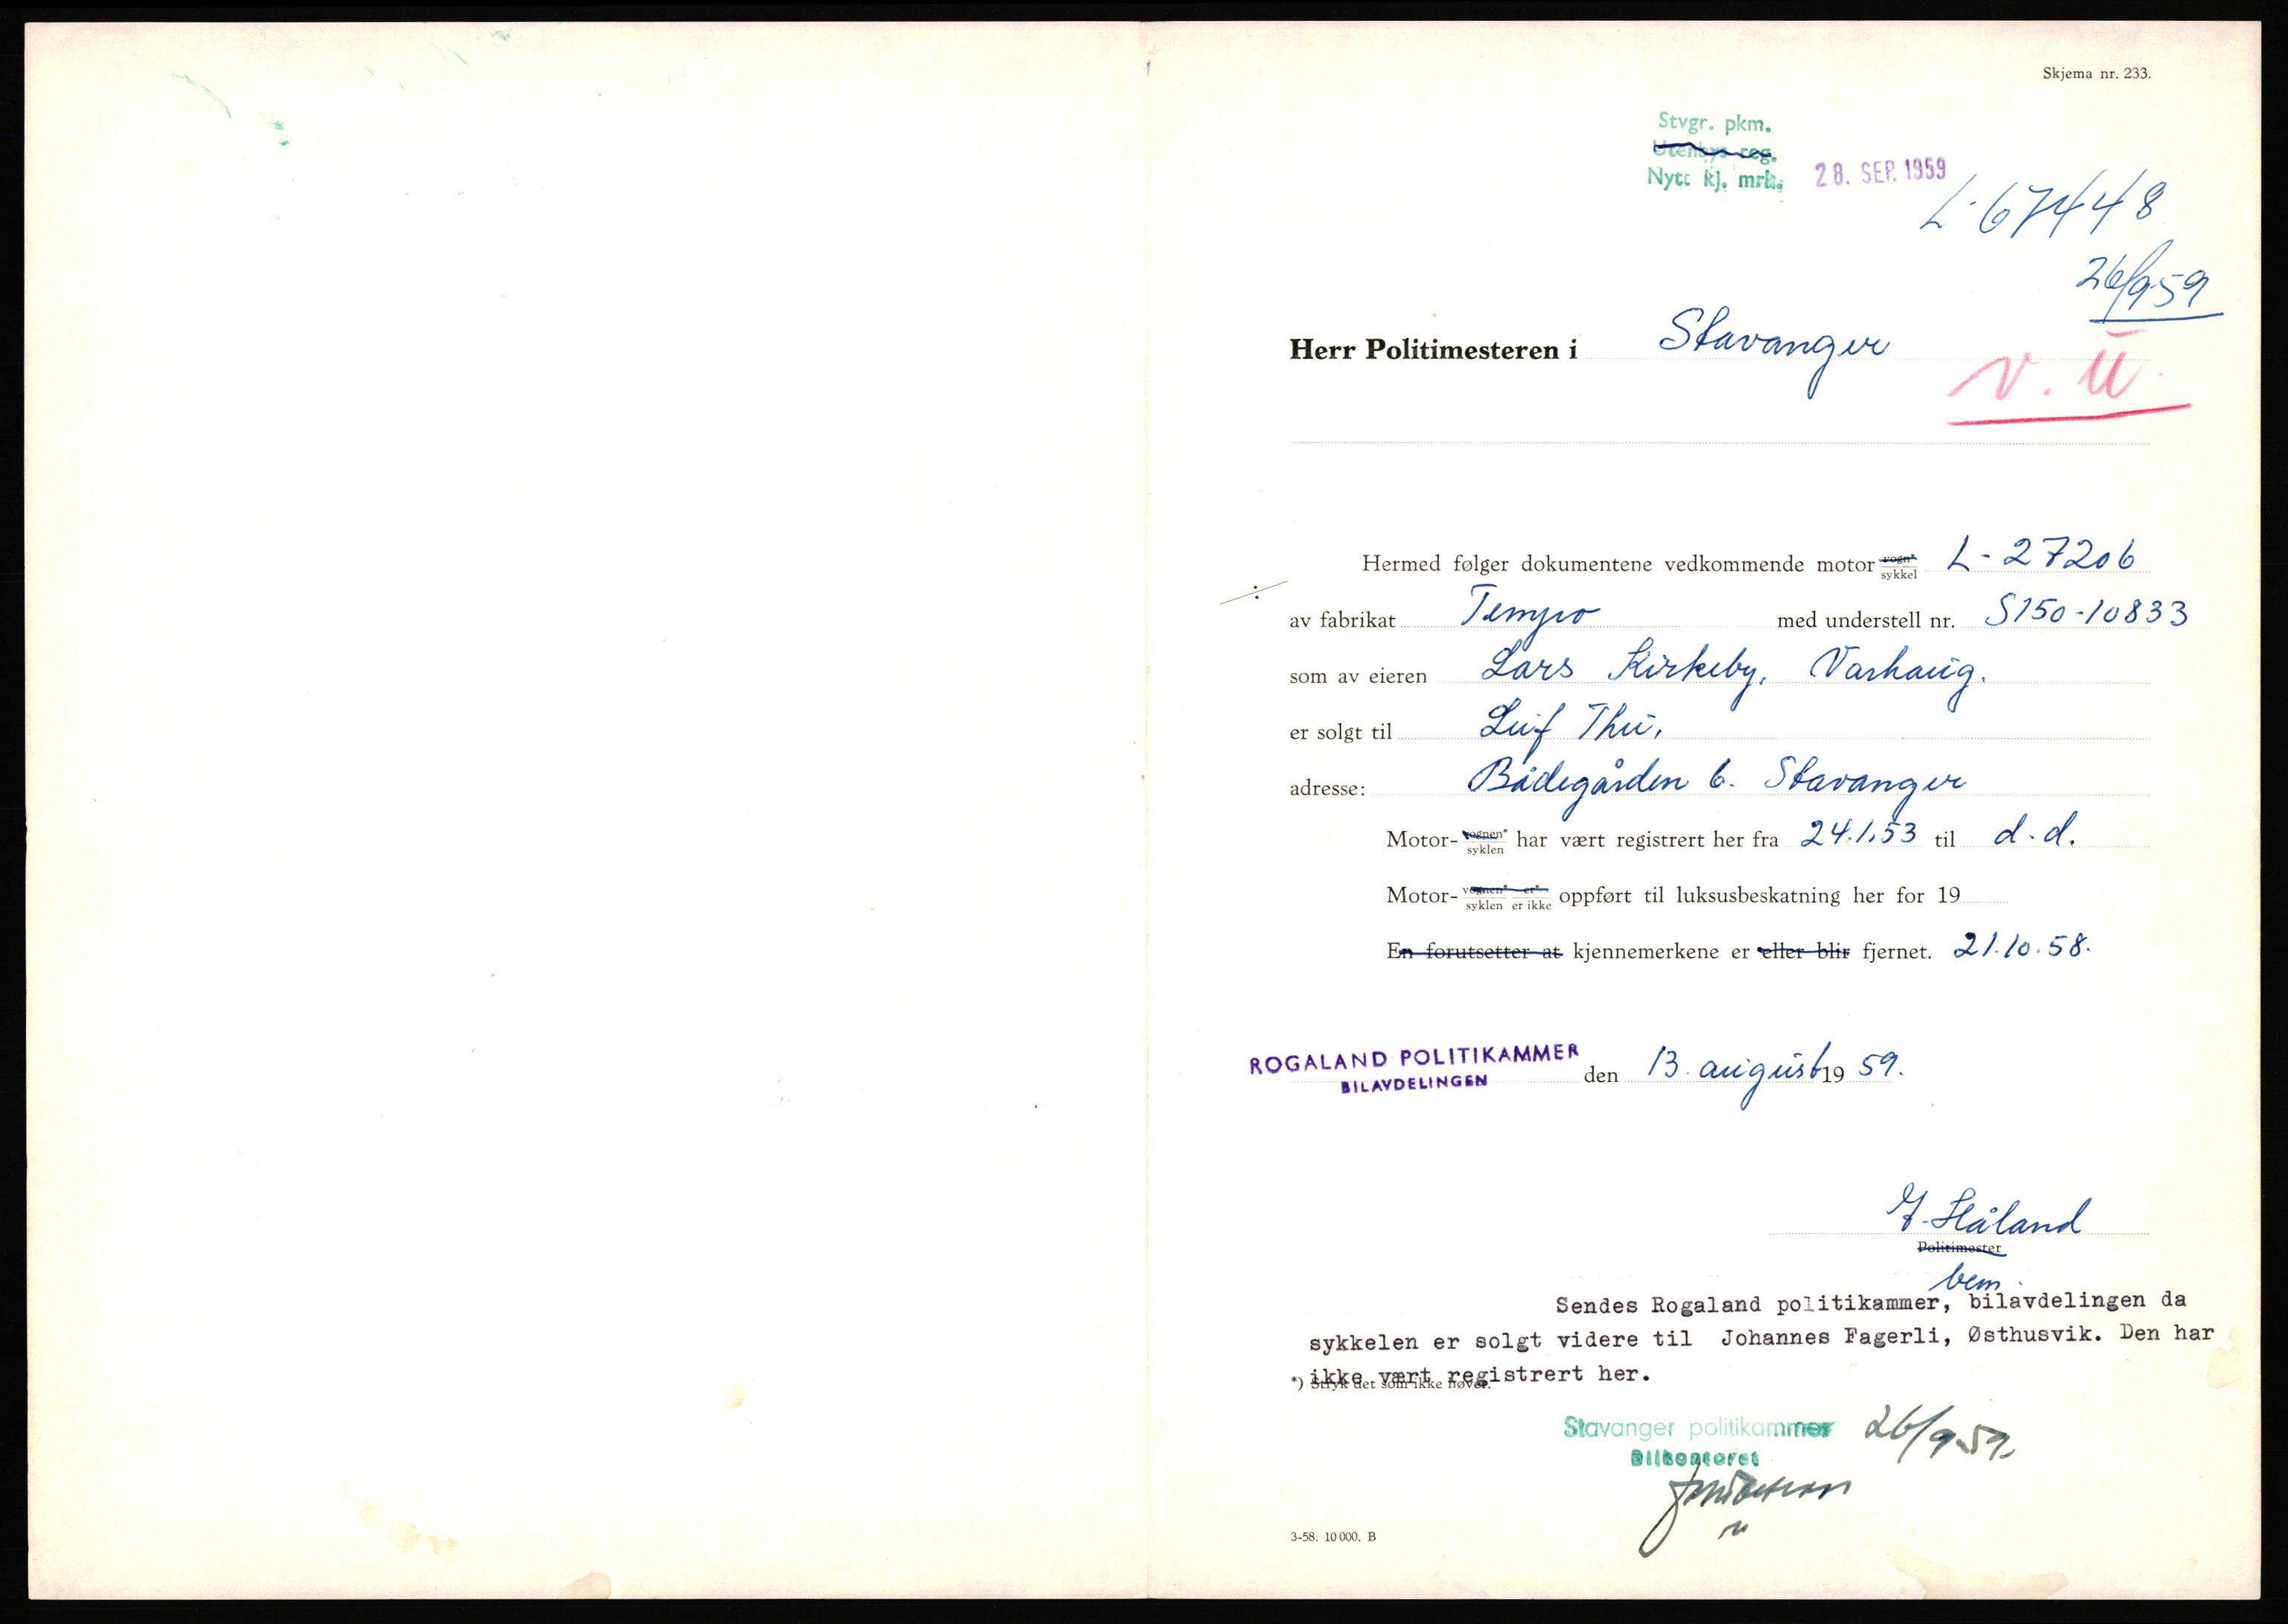 Skjema nr. 233.
Stvgr. pkm.
Utenbys reg.
Nytt kj. mrk. 28. SEP. 1959
L-67448
26/9-59
Herr Politimesteren i Stavanger
v. u.
Hermed følger dokumentene vedkommende motor vogn* sykkel L-27206
av fabrikat Tempo med understell nr. S150-10833
som av eieren Lars Kirkeby, Varhaug.
er solgt til Leif Thu,
adresse: Bådegården 6. Stavanger
Motor- vognen* syklen har vært registrert her fra 24.1.53 til d.d.
Motor- vognen* er* syklen er ikke oppført til luksusbeskatning her for 19
En forutsetter at kjennemerkene er eller blir fjernet. 21.10.58.
ROGALAND POLITIKAMMER
BILAVDELINGEN den 13. august 19 59.
Håland
Politimester
bem.
Sendes Rogaland politikammer, bilavdelingen da
sykkelen er solgt videre til Johannes Fagerli, Østhusvik. Den har
ikke vært registrert her.
*) Stryk det som ikke høver.
Stavanger politikammer 26/9-59.
Bilkontoret
3-58. 10 000. B